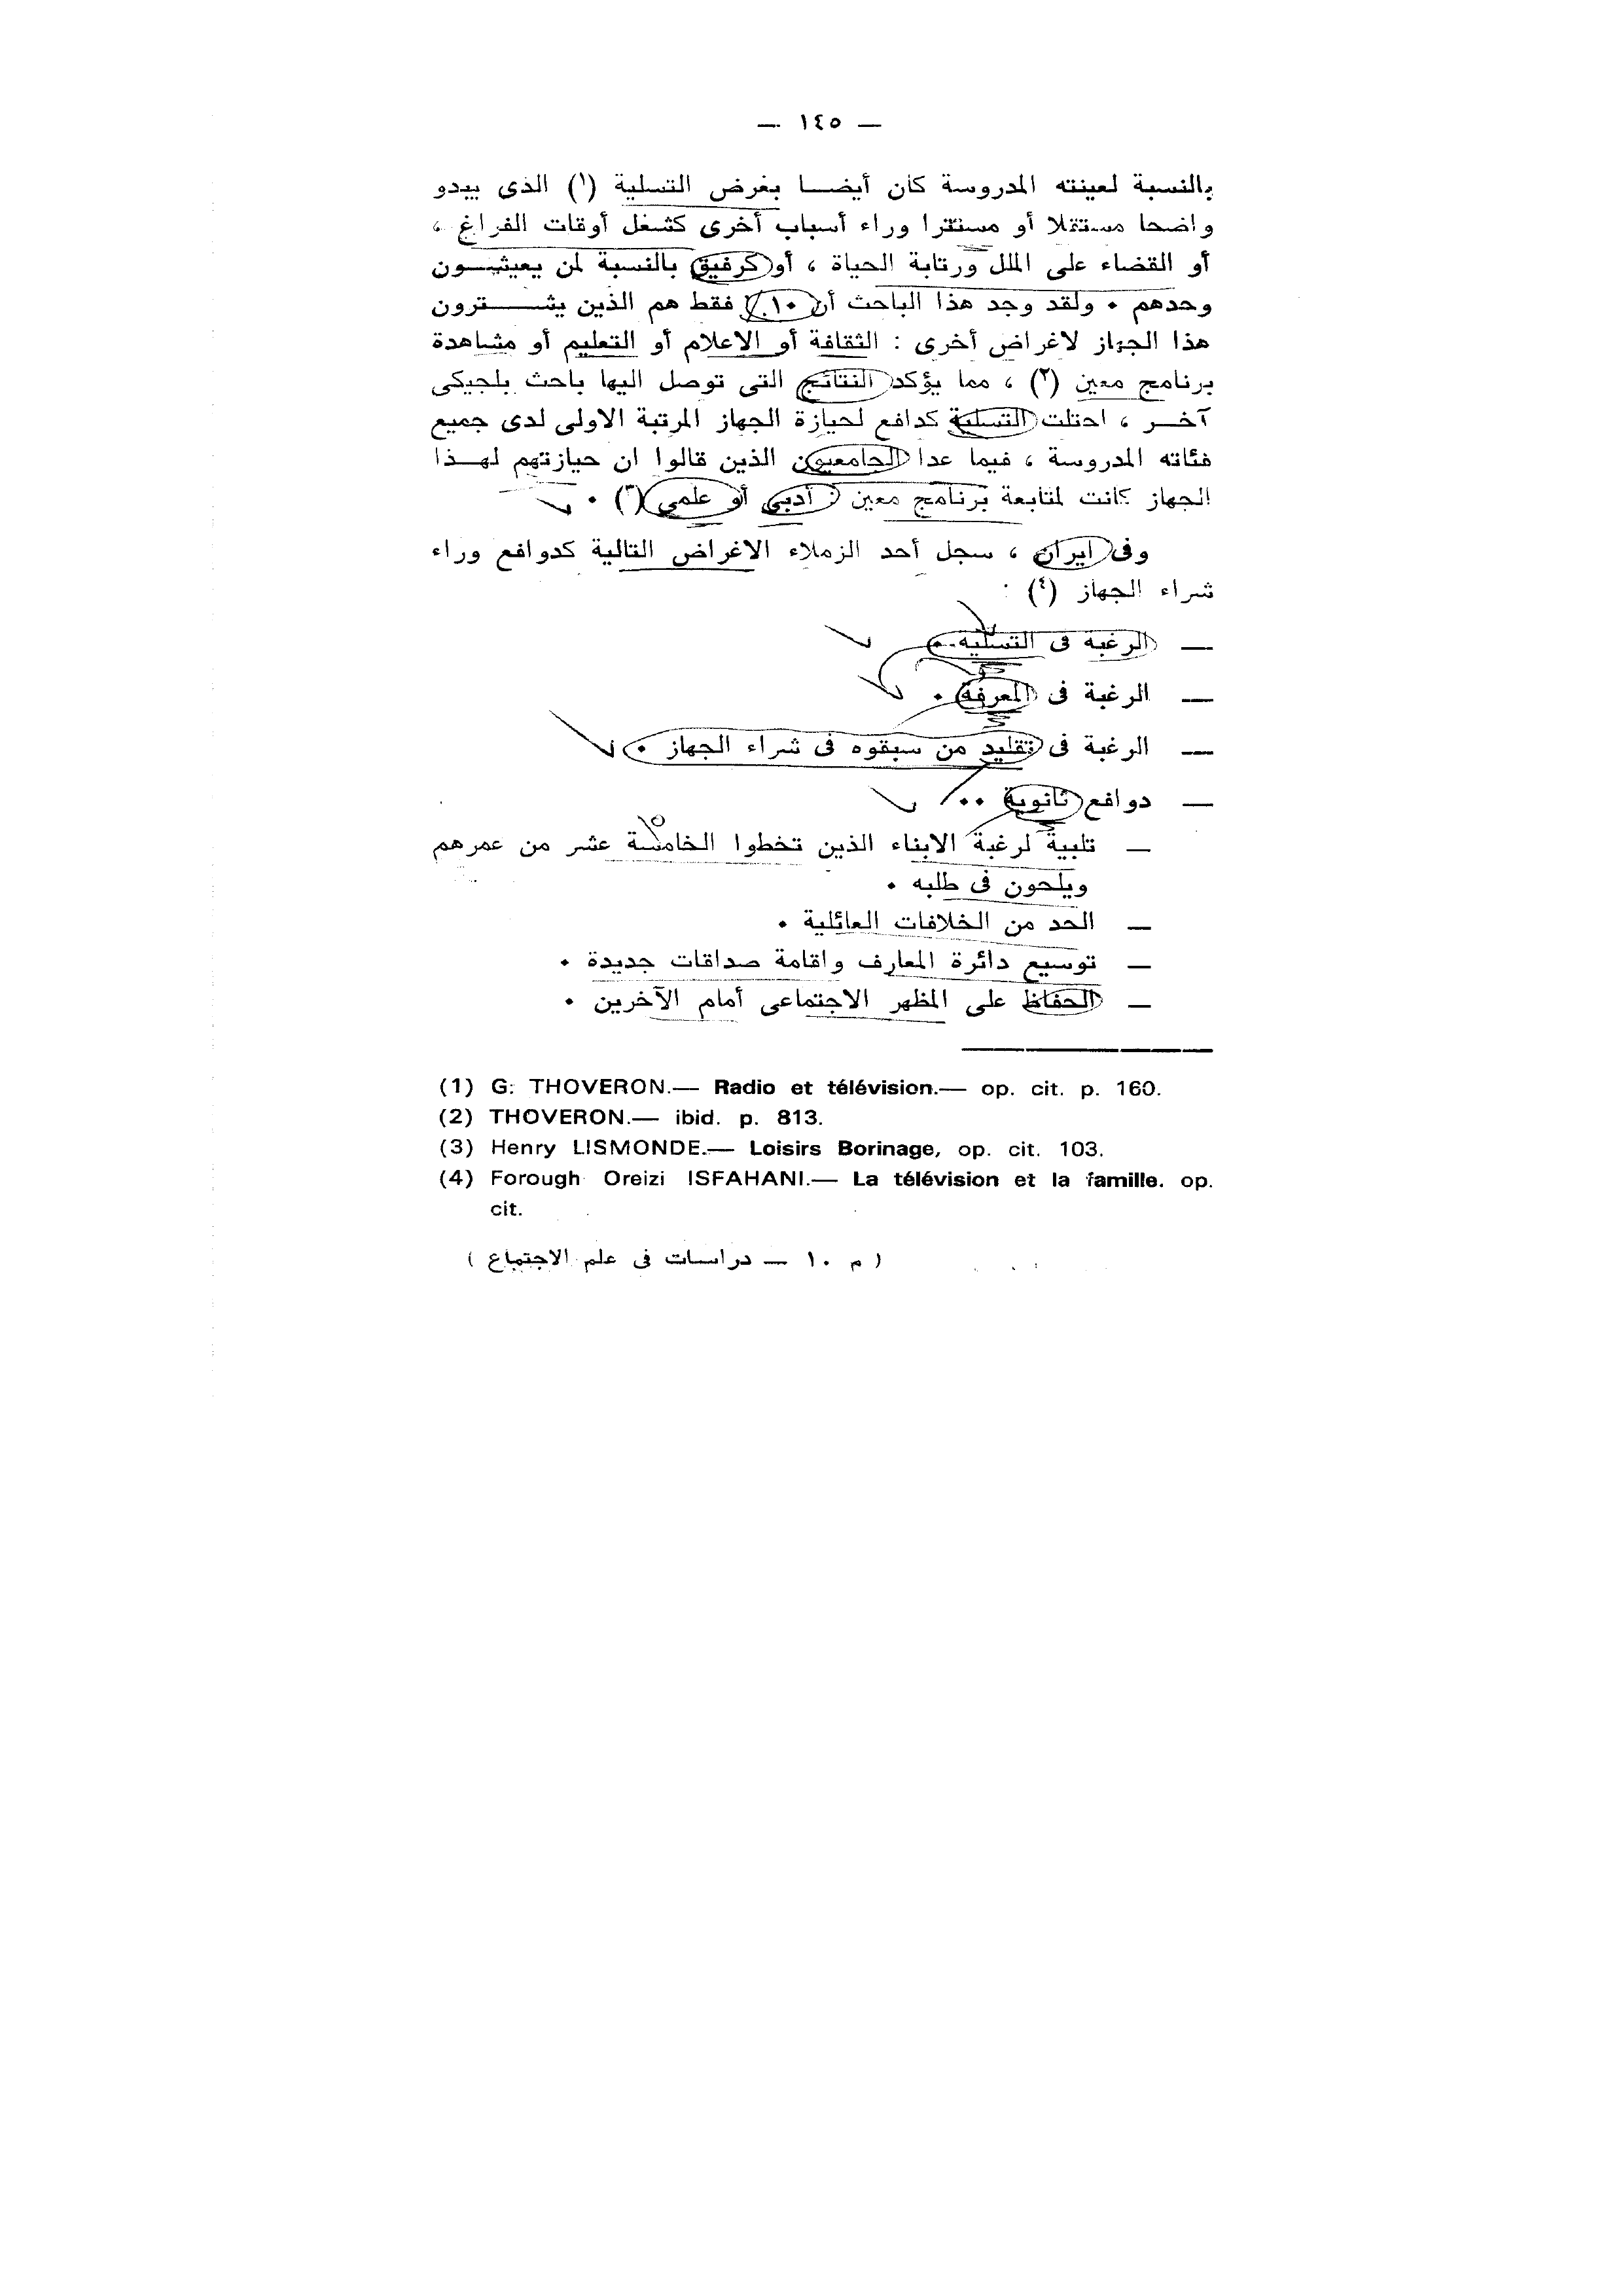 — ١٤٥ —
بالنسبة لعينته المدروسة كان أيضـــا بغرض التسلية (١) الذى يبدو
واضحا مستقلا أو مستترا وراء أسباب أخرى كشغل أوقات الفراغ ،
أو القضاء على الملل ورتابة الحياة ، أو كرفيق بالنسبة لمن يعيشــون
وحدهم ٠ ولقد وجد هذا الباحث أن ١٠٪ فقط هم الذين يشـــــترون
هذا الجهاز لاغراض أخرى : الثقافة أو الاعلام أو التعليم أو مشاهدة
برنامج معين (٢) ، مما يؤكد النتائج التى توصل اليها باحث بلجيكى
آخـــر ، احتلت التسلية كدافع لحيازة الجهاز المرتبة الاولى لدى جميع
فئاته المدروسة ، فيما عدا الجامعيون الذين قالوا ان حيازتهم لهــذا
الجهاز كانت لمتابعة برنامج معين : أدبى أو علمى (٣) ٠
وفى ايران ، سجل أحد الزملاء الاغراض التالية كدوافع وراء
شراء الجهاز (٤) :
— الرغبة فى التسلية ٠
— الرغبة فى المعرفة ٠
— الرغبة فى تقليد من سبقوه فى شراء الجهاز ٠
— دوافع ثانوية ٠٠
١٥
— تلبية لرغبة الابناء الذين تخطوا الخامسة عشر من عمرهم
ويلحون فى طلبه ٠
— الحد من الخلافات العائلية ٠
— توسيع دائرة المعارف واقامة صداقات جديدة ٠
— الحفاظ على المظهر الاجتماعى أمام الآخرين ٠
(1) G. THOVERON.— Radio et télévision.— op. cit. p. 160.
(2) THOVERON.— ibid. p. 813.
(3) Henry LISMONDE.— Loisirs Borinage, op. cit. 103.
(4) Forough Oreizi ISFAHANI.— La télévision et la famille. op.
cit.
( م ١٠ — دراسات فى علم الاجتماع )